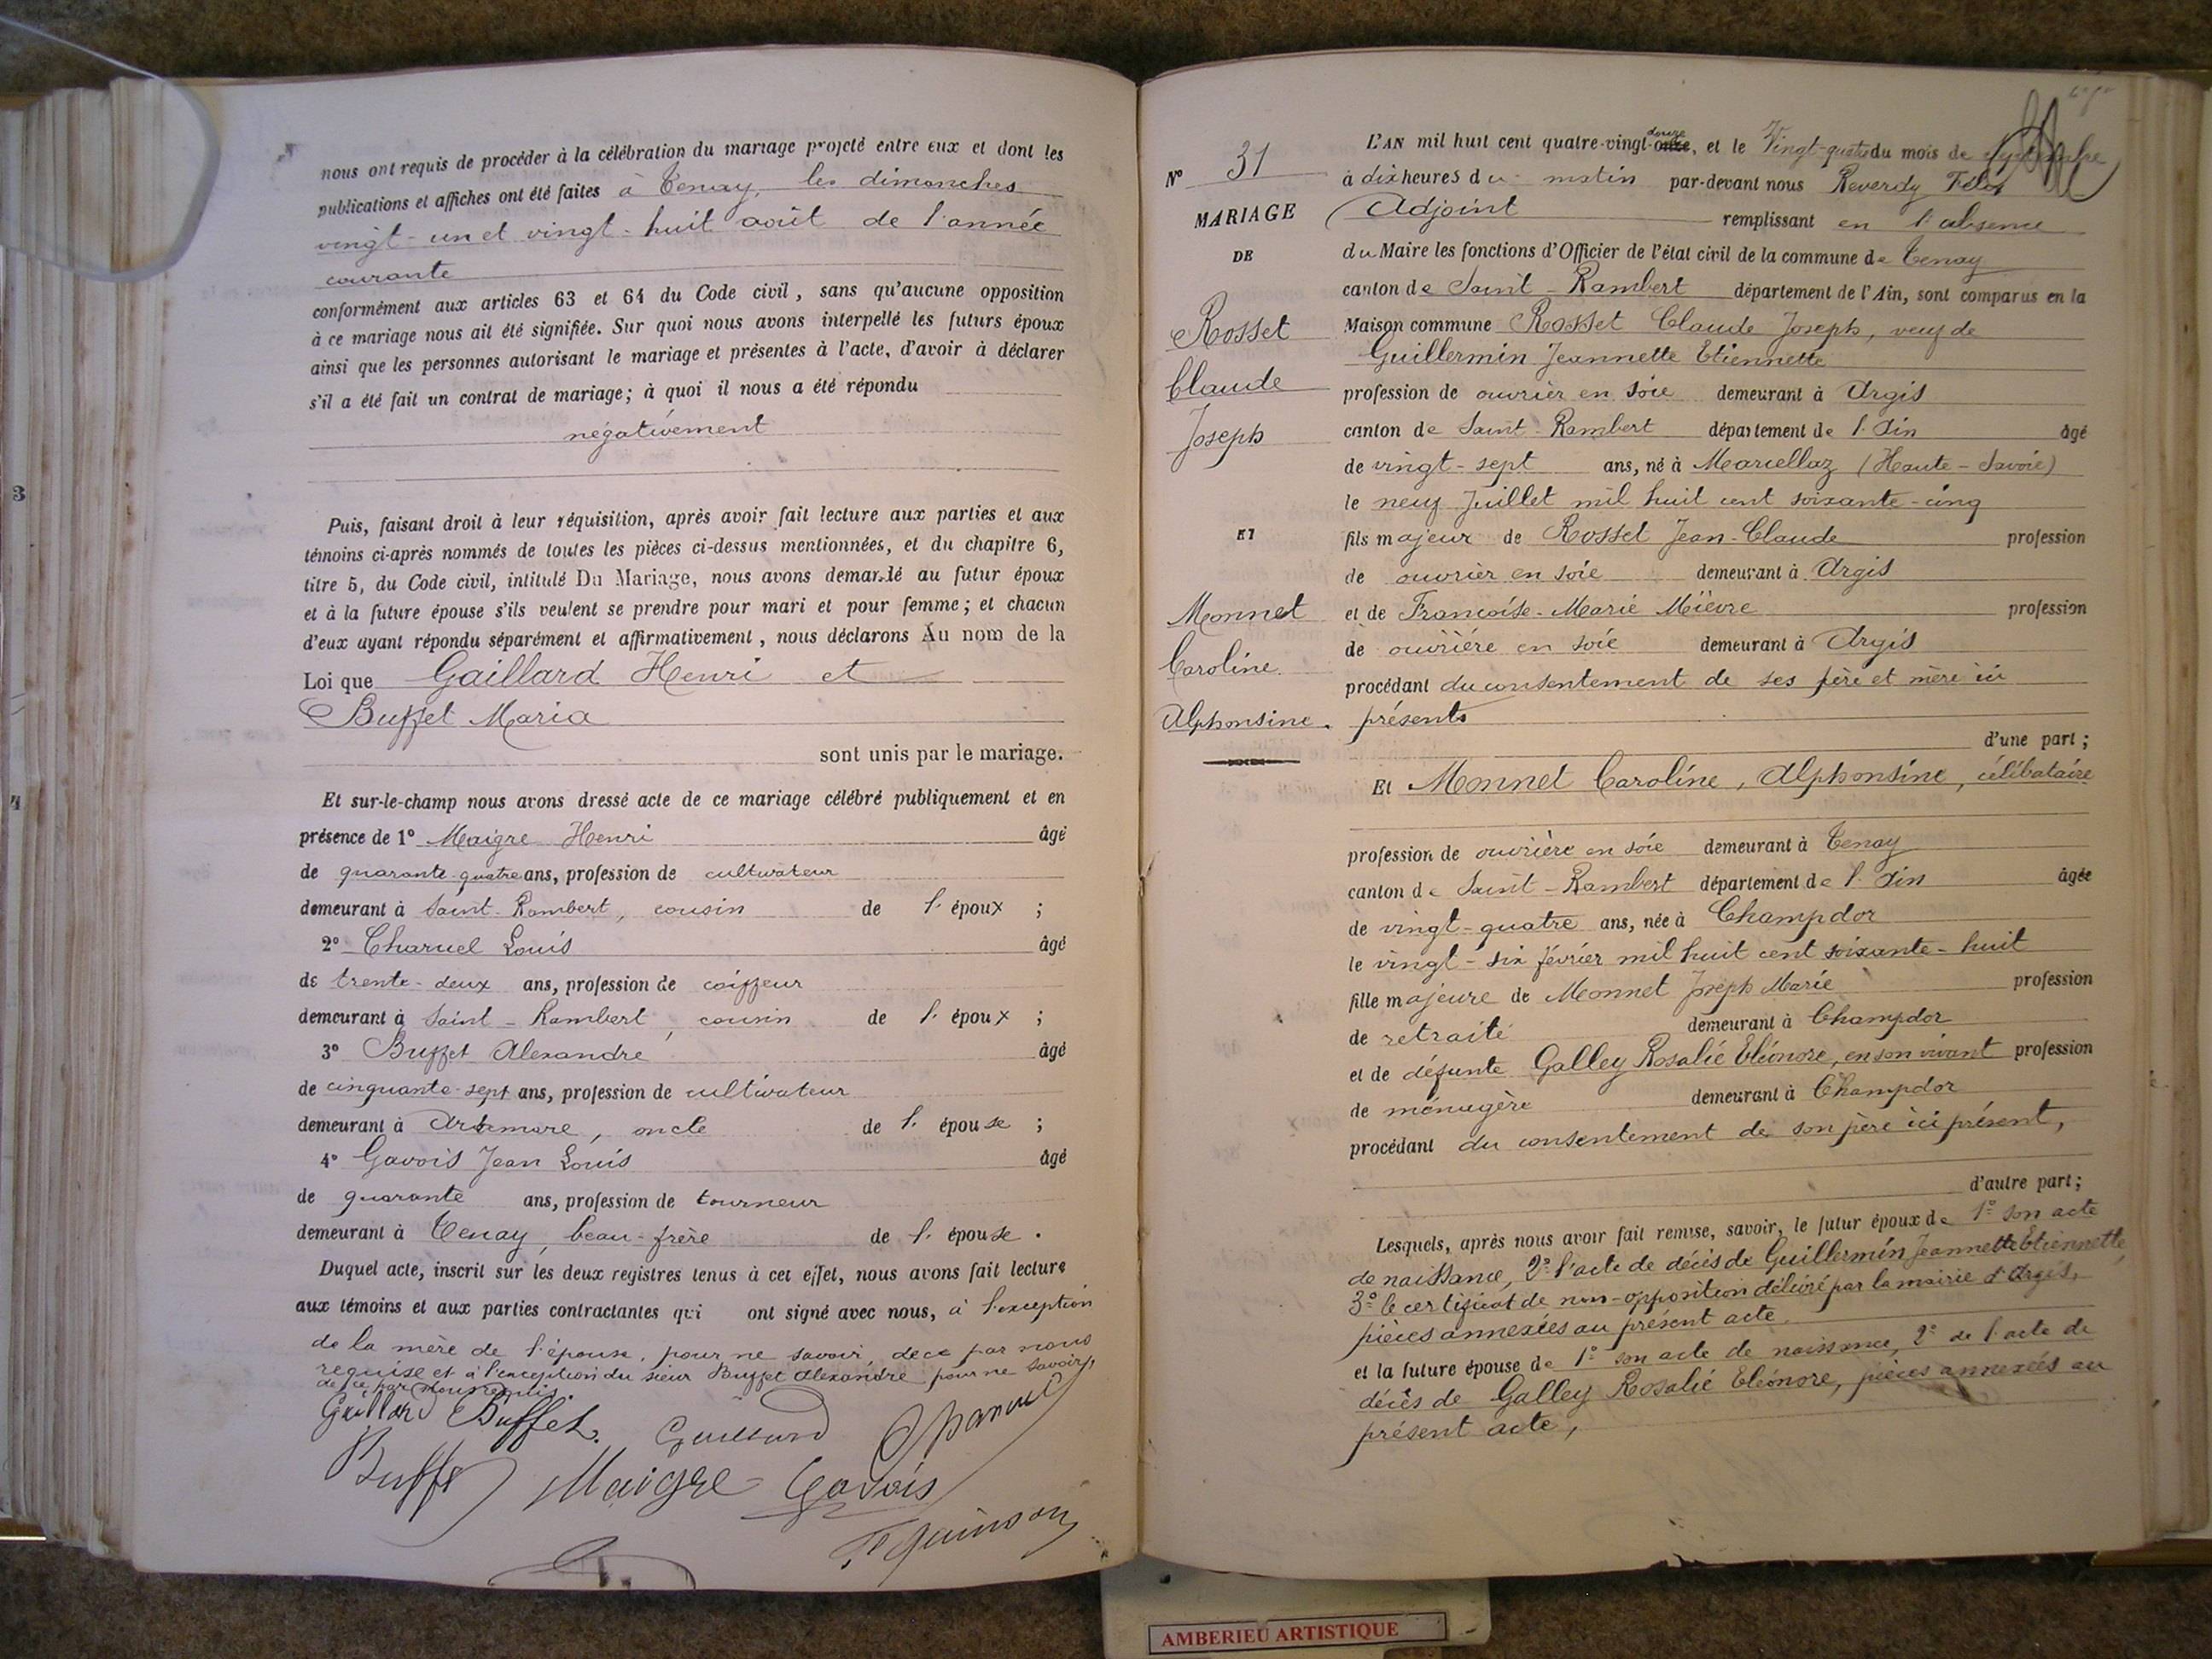 nous ont requis de procéder à la célébration du mariage projeté entre eux et dont les
publications et affiches ont été faites à Tenay, les dimanches
vingt-un et vingt-huit août de l'année
courante
conformément aux articles 63 et 64 du Code civil, sans qu'aucune opposition
à ce mariage nous ait été signifiée. Sur quoi nous avons interpellé les futurs époux
ainsi que les personnes autorisant le mariage et présentes à l'acte, d'avoir à déclarer
s'il a été fait un contrat de mariage; à quoi il nous a été répondu
négativement
Puis, faisant droit à leur réquisition, après avoir fait lecture aux parties et aux
témoins ci-après nommés de toutes les pièces ci-dessus mentionnées, et du chapitre 6,
titre 5, du Code civil, intitulé Du Mariage, nous avons demandé au futur époux
et à la future épouse s'ils veulent se prendre pour mari et pour femme; et chacun
d'eux ayant répondu séparément et affirmativement, nous déclarons Au nom de la
Loi que Gaillard Henri et
Buffet Maria
sont unis par le mariage.
Et sur-le-champ nous avons dressé acte de ce mariage célébré publiquement et en
présence de 1° Maigre Henri âgé
de quarante-quatre ans, profession de cultivateur
demeurant à Saint-Rambert, cousin de l'époux ;
2° Charuel Louis âgé
de trente-deux ans, profession de coiffeur
demeurant à Saint-Rambert, cousin de l'époux ;
3° Buffet Alexandre âgé
de cinquante-sept ans, profession de cultivateur
demeurant à Artemare, oncle de l'épouse ;
4° Gavois Jean Louis âgé
de quarante ans, profession de tourneur
demeurant à Tenay, beau-frère de l'épouse.
Duquel acte, inscrit sur les deux registres tenus à cet effet, nous avons fait lecture
aux témoins et aux parties contractantes qui ont signé avec nous, à l'exception
de la mère de l'épouse, pour ne savoir, de ce par nous
requise et à l'exception du sieur Buffet Alexandre pour ne savoir,
de ce par nous requis.
Gaillard Buffet. Gaillard Charuel
Buffet Maigre Gavois
AMBERIEU ARTISTIQUE
N° 31
MARIAGE
DE
Rosset
Claude
Joseph
ET
Monnet
Caroline
Alphonsine.
L'AN mil huit cent quatre-vingt-onze douze, et le Vingt-quatre du mois de septembre
à dix heures du matin par-devant nous Reverdy Félix
Adjoint remplissant en l'absence
du Maire les fonctions d'Officier de l'état civil de la commune de Tenay
canton de Saint-Rambert département de l'Ain, sont comparus en la
Maison commune Rosset Claude Joseph, veuf de
Guillermin Jeannette Etiennette
profession de ouvrier en soie demeurant à Argis
canton de Saint-Rambert département de l'Ain âgé
de vingt-sept ans, né à Marcellaz (Haute-Savoie)
le neuf Juillet mil huit cent soixante-cinq
fils majeur de Rosset Jean-Claude profession
de ouvrier en soie demeurant à Argis
et de Françoise-Marie Mièvre profession
de ouvrière en soie demeurant à Argis
procédant du consentement de ses père et mère ici
présents
d'une part;
Et Monnet Caroline, Alphonsine, célibataire
profession de ouvrière en soie demeurant à Tenay
canton de Saint-Rambert département de l'Ain âgée
de vingt-quatre ans, née à Champdor
le vingt-six février mil huit cent soixante-huit
fille majeure de Monnet Joseph Marie profession
de retraité demeurant à Champdor
et de défunte Galley Rosalie Eléonore, en son vivant profession
de ménagère demeurant à Champdor
procédant du consentement de son père ici présent,
d'autre part;
Lesquels, après nous avoir fait remise, savoir, le futur époux de 1° son acte
de naissance, 2° l'acte de décès de Guillermin Jeannette Etiennette,
3° le certificat de non-opposition délivré par la mairie d'Argis,
pièces annexées au présent acte.
et la future épouse de 1° son acte de naissance, 2° de l'acte de
décès de Galley Rosalie Eléonore, pièces annexées au
présent acte,